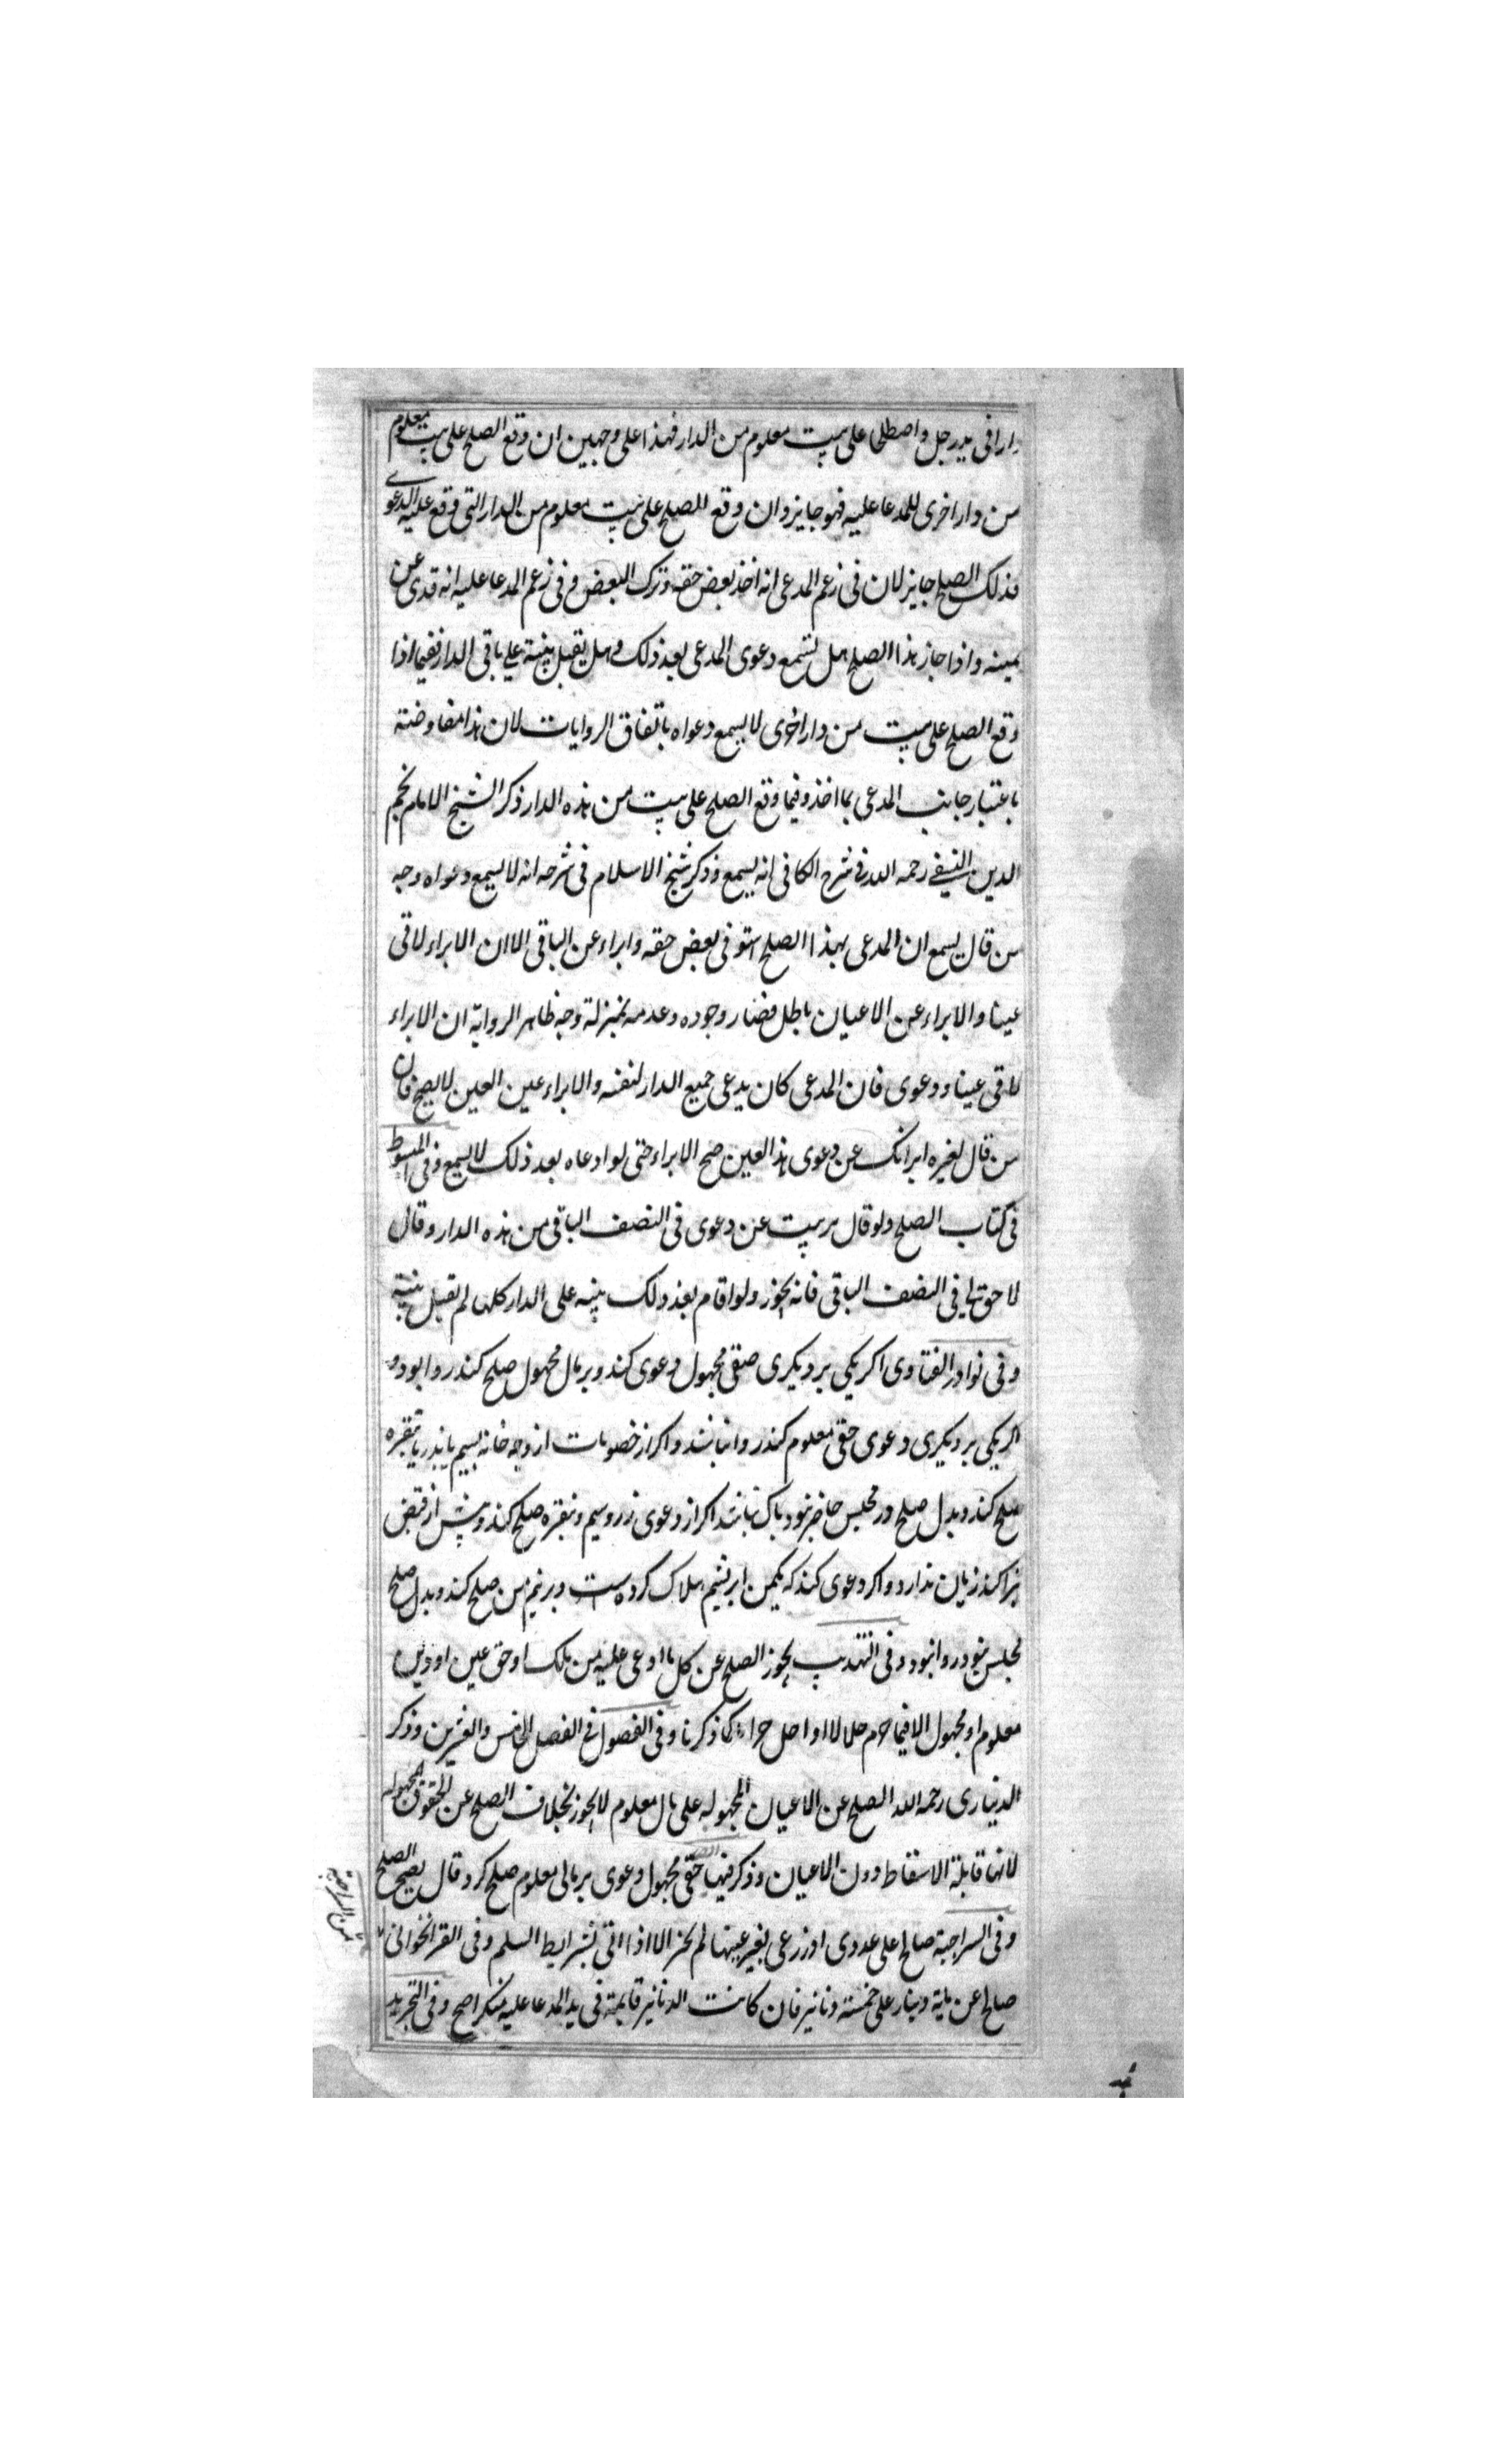 دارا فی ید رجل واصطلحا علی بیت معلوم من الدار فهذا علی وجهین ان وقع الصلح علی بیت معلوم
من دار اخری للمدعا علیه فهو جایز وان وقع الصلح علی بیت معلوم من الدار التی وقع علیه الدعوی
فذلک الصلح جایز لان فی زعم المدعی انه اخذ بعض حقه وترک البعض وفی زعم المدعا علیه انه فدی عن
یمینه واذا جاز هذا الصلح هل تسمع دعوی المدعی بعد ذلک وهل یقبل بینة علی باقی الدار ففیما اذا
وقع الصلح علی بیت من دار اخری لا یسمع دعواه باتفاق الروایات لان هذا مفاوضة
باعتبار جانب المدعی بما اخذ وفیما وقع الصلح علی بیت من هذه الدار ذکر الشیخ الامام نجم
الدین النسفی رحمه الله فی شرح الکافی انه یسمع وذکر شیخ الاسلام فی شرحه انه لا یسمع دعواه وجه
من قال یسمع ان المدعی بهذا الصلح استوفی بعض حقه وابراء عن الباقی الا ان الابراء لاقی
عینا والابراء عن الاعیان باطل فصار وجوده وعدمه بمنزلة وجه ظاهر الروایة ان الابراء
لاقی عینا ودعوی فان المدعی کان یدعی جمیع الدار لنفسه والابراء عین العین لا یصح فان
من قال لغیره ابرأتک عن دعوی هذا العین صح الابراء حتی لو ادعاه بعد ذلک لا یسمع وفی المبسوط
فی کتاب الصلح ولو قال برییت عن دعوی فی النصف الباقی من هذه الدار وقال
لا حق لی فی النصف الباقی فانه یجوز ولو اقام بعد ذلک بینه علی الدار کلها لم تقبل بینته
وفی نوادر الفتاوی اکر یکی بر دیکری حقی مجهول دعوی کند وبر مال مجهول صلح کند روا بود و
اکر یکی بر دیکری دعوی حقی معلوم کند روا نباشد واکر از خصومات از وجه خانه بسیم یا بزر یا بنقره
صلح کند وبدل صلح در مجلس حاضر نبود باک نباشد اکر از دعوی زر وسیم ونقره صلح کند وپیش از قبض
کند زیان ندارد واکر دعوی کند که یکمن ابریشم هلاک کرده است وبر نیم من صلح کند وبدل صلح
مجلس نبود روا نبود وفی التهذیب یجوز الصلح عن کل ما ادعی علیه من ملک او حق عین او دین
معلوم او مجهول الا فیما حرم حلالا او احل حراما کما ذکرنا وفی الفصول فی الفصل الخامس والعشرین وذکر
الدیناری رحمه الله الصلح عن الاعیان المجهوله علی مال معلوم لا یجوز بخلاف الصلح عن الحقوق المجهوله
لانها قابلة الاسقاط دون الاعیان وذکر فیها حقی مجهول دعوی بر مالی معلوم صلح کرد قال یصح الصلح
وفی السراجیة صالح علی عددی او زرعی بغیر عینها لم یجز الا اذا اتی بشرایط السلم وفی القراخوانی
صالح عن مایة دینار علی خمسة دنانیر فان کانت الدنانیر قایمة فی ید المدعا علیه منکرا صح وفی التجرید